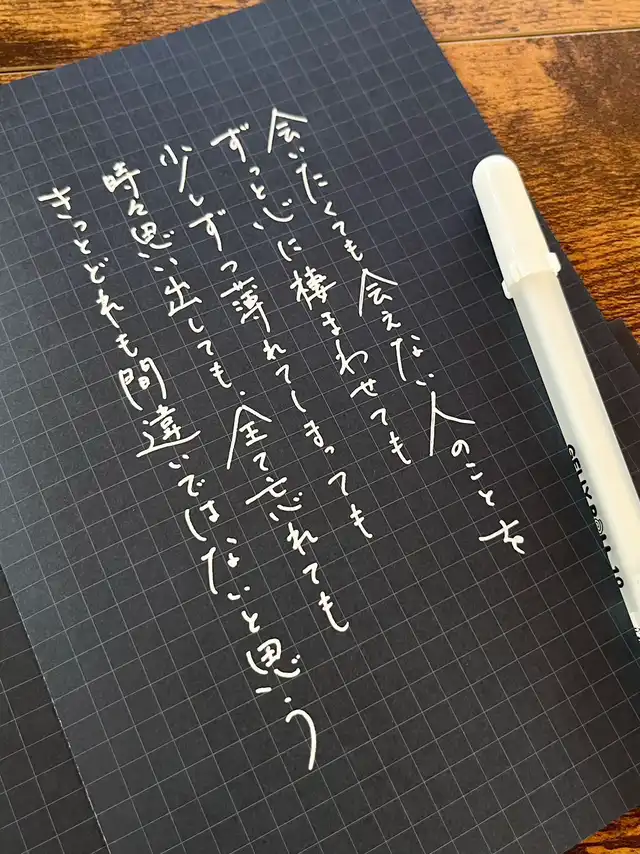 会いたくても会えない人のことを
ずっと心に棲まわせても
少しずつ薄れてしまっても
時々思い出しても、全て忘れても
きっとどれも間違いではないと思う
GELLY ROLL 10